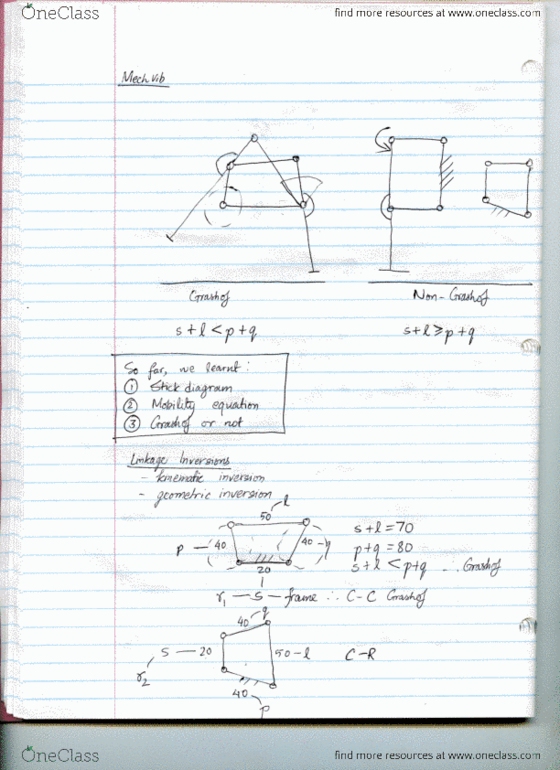 OneClass
find more resources at www.oneclass.com
Mech vib
Grashof
Non-Grashof
s+l < p+q
s+l ≥ p+q
So far, we learnt:
① Stick diagram
② Mobility equation
③ Grashof or not
Linkage Inversions
- kinematic inversion
- geometric inversion
50 l
p — 40
40 — q
20
s+l = 70
p+q = 80
s+l < p+q ∴ Grashof
r₁ — s — frame ∴ C-C Grashof
40 q
s — 20
50 - l
C-R
r₂
40
p
OneClass
find more resources at www.oneclass.com